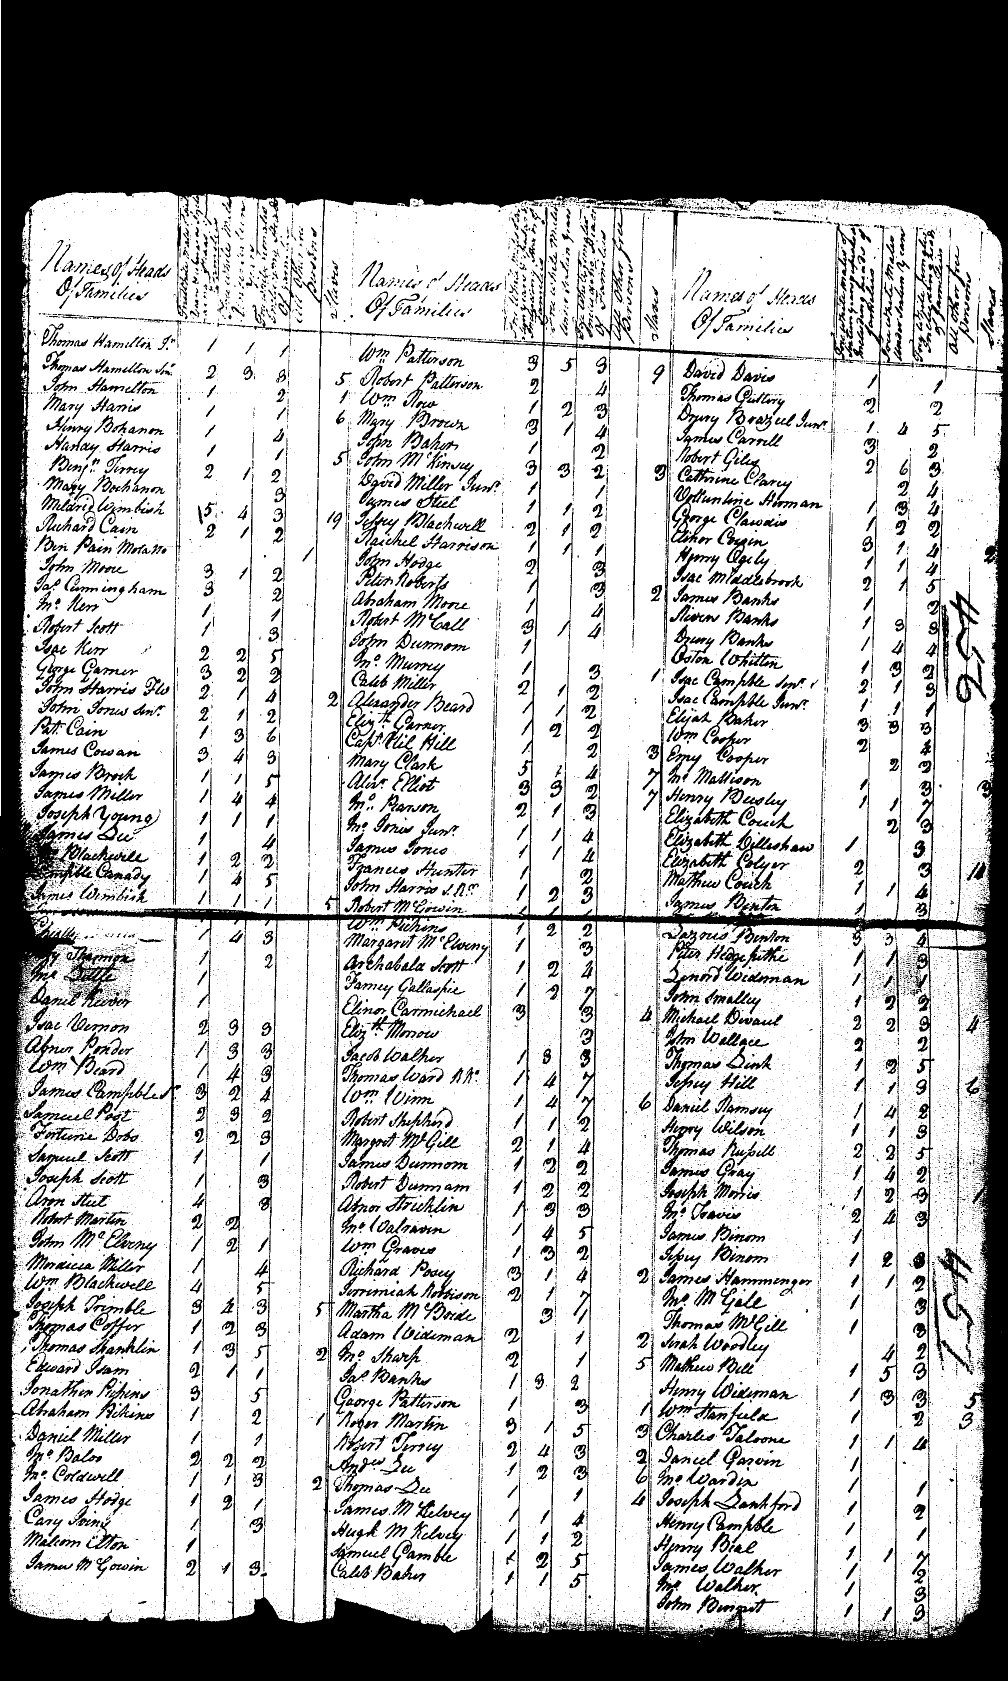 Names of Heads
Of Families
Slaves
Thomas Hamilton Jr 1 1 1
Thomas Hamilton Senr 2 3 3 5
John Hamilton 1 2 1
Mary Harris 1 1 6
Henry Bohanon 1 4
Handy Harris 1 1 5
Benjn Terrey 2 1 2
Mary Bochanon 3
Milard Wimbish 15 4 3 19
Richard Cain 2 1 2
Ben Pain Molatto 1
John Moore 3 1 2
Jas Cunningham 3 2
Jno Kerr 1 1
Robert Scott 1 3
Isac Kerr 2 2 5
George Garner 3 2 2
John Harris 2 1 4 2
John Jones Senr 2 1 2
Pat. Cain 1 3 6
James Cowan 3 4 3
James Brock 1 1 5
James Miller 1 4 4
Joseph Young 1 1 1
James Lee 1 4
Blackwell 1 2 2
Canady 1 4 5
James Wimbish 1 1 1 5
1 4 3
1 2
Jno 1
Daniel 1
Isac Vernon 2 3 3
Abner Ponder 1 3 3
Wm Beard 1 4 3
James Campble Sr 3 2 4
Samuel Post 2 3 2
Fortune Dobs 2 2 3
Samuel Scott 1 1
Joseph Scott 1 3
Aron Steel 4 3
Robert Martin 2 2
John McElveny 1 2 1
Mordicia Miller 1 4
Wm Blackwell 4 5
Joseph Trimble 3 4 3 5
Thomas Coffer 1 2 3
Thomas Shanklin 1 3 5 2
Edward Isam 2 1 1
Jonathan Pikins 3 5
Abraham Pikines 1 2 1
Daniel Miller 1 1
Jno Balos 2 2 2
Jno Coldwell 1 1 3 2
James Hodge 1 2 1
Cary Irvine 1 3
Malcom Elton 1
James McGowin 2 1 3
Names of Heads
Of Families
Slaves
Wm Patterson 3 5 3 9
Robert Patterson 2 4
Wm Row 1 2 3
Mary Brown 3 1 4
John Baker 1 2
John McKinsey 3 3 2 3
David Miller Junr 1 1
James Steel 1 1 2
Jefsey Blackwell 2 1 2
Raichel Harrison 1 1 1
John Hodge 2 3
Peter Roberts 1 3 2
Abraham Moore 1 4
Robert McCall 3 1 4
John Dunnom 1
Jno Murrey 1 3 1
Caleb Miller 2 1 2
Alexander Beard 1 1 2
Elizth Garner 1 2 2
Capt Hil Hill 1 2 3
Mary Clark 5 1 4 7
Alexr Elliot 3 3 2 7
Jno Pearson 2 1 3
Jno Jones Junr 1 1 4
James Jones 1 1 4
Frances Hunter 1 2
John Harris 1 2 3
Robert McGowin
Wm Pickins 1 2 2
Margaret McElveny 1 3
Archabald Scott 1 2 4
Famey Gallaspie 1 2 7
Elinor Carmichael 3 3 4
Elizth Morrow 3
Jacob Walker 1 3 3
Thomas Ward 1 4 7
Wm Winn 1 4 7 6
Robert Shepherd 1 1 2
Margret McGill 2 1 4
James Dunnom 1 2 2
Robert Dunnam 1 2 2
Abnor Stricklin 1 3 3
Jno Walravin 1 4 5
Wm Graves 1 3 2
Richard Posey 3 1 4 2
Jerrimiah Robison 2 1 7
Martha McBride 3 1
Adam Wideman 2 1 2
Jno Sharp 2 1 5
Jas Banks 1 3 2
George Patterson 1 3 1
Roger Martin 3 1 5 3
Robert Terrey 2 4 3 2
Andw Lee 1 2 3 6
Thomas Lee 1 1 4
James McKelvey 1 1 4
Hugh McKelvey 1 1 2
Samuel Gamble 1 2 5
Caleb Baker 1 1 5
Names of Heads
Of Families
All other free persons
Slaves
David Davis 1 1
Thomas Guttery 2 2
Drury Brazeel Junr 1 4 5
James Carrell 3 2
Robert Giles 2 6 3
Cathrine Clarey 2 4
Volluntine Hornan 1 3 4
George Clawdis 1 2 2
Elinor Cowin 3 1 4 2
Henry Ogily 1 1 4
Isac Middlebrook 2 1 5
James Banks 1 2
Rivers Banks 1 3 3
Drury Banks 1 4 4
Oston Whitten 1 3 2
Isac Campble Senr 2 1 3
Isac Campble Junr 1 1 1
Elijah Baker 3 3 3
Wm Cooper 2 4
Emy Cooper 2 2
Jno Mattison 1 3 3
Henry Beesley 1 1 7
Elizabeth Couch 2 3
Elizabeth Dillashaw 1 3
Elizabeth Colyer 2 3 10
Mathew Couch 1 1 4
James Benton 1 3
Lazores Benton 3 3 4
Peter Hedgepithe 1 1 3
Lenord Wideman 1 1 1
John Smalley 1 2 2
Michael Divaul 2 2 3 4
John Wallace 2 2
Thomas Link 1 2 5
Jefsey Hill 1 1 3 6
Daniel Ramsey 1 4 2
Henry Wilson 1 1 3
Thomas Russell 2 2 5
James Gray 1 4 2
Joseph Morris 1 2 3 1
Jno Travis 2 4 3
James Binom 1
Jefsey Binom 1 2 3
James Hammenger 1 1 2
Jno McGill 1 3
Thomas McGill 1 3
Sirah Woodley 4 2
Mathew Bell 1 5 3
Henry Wideman 1 3 3 5
Wm Stanfield 1 2 3
Charles Faloone 1 1 4
Daniel Garvin 1
Jno Warden 1 1
Joseph Lankford 1 2
Henry Campble 1 1
Henry Beal 1 1 7
James Walker 2
Jno Walker 3
John Bengert 1 1 3
458
457